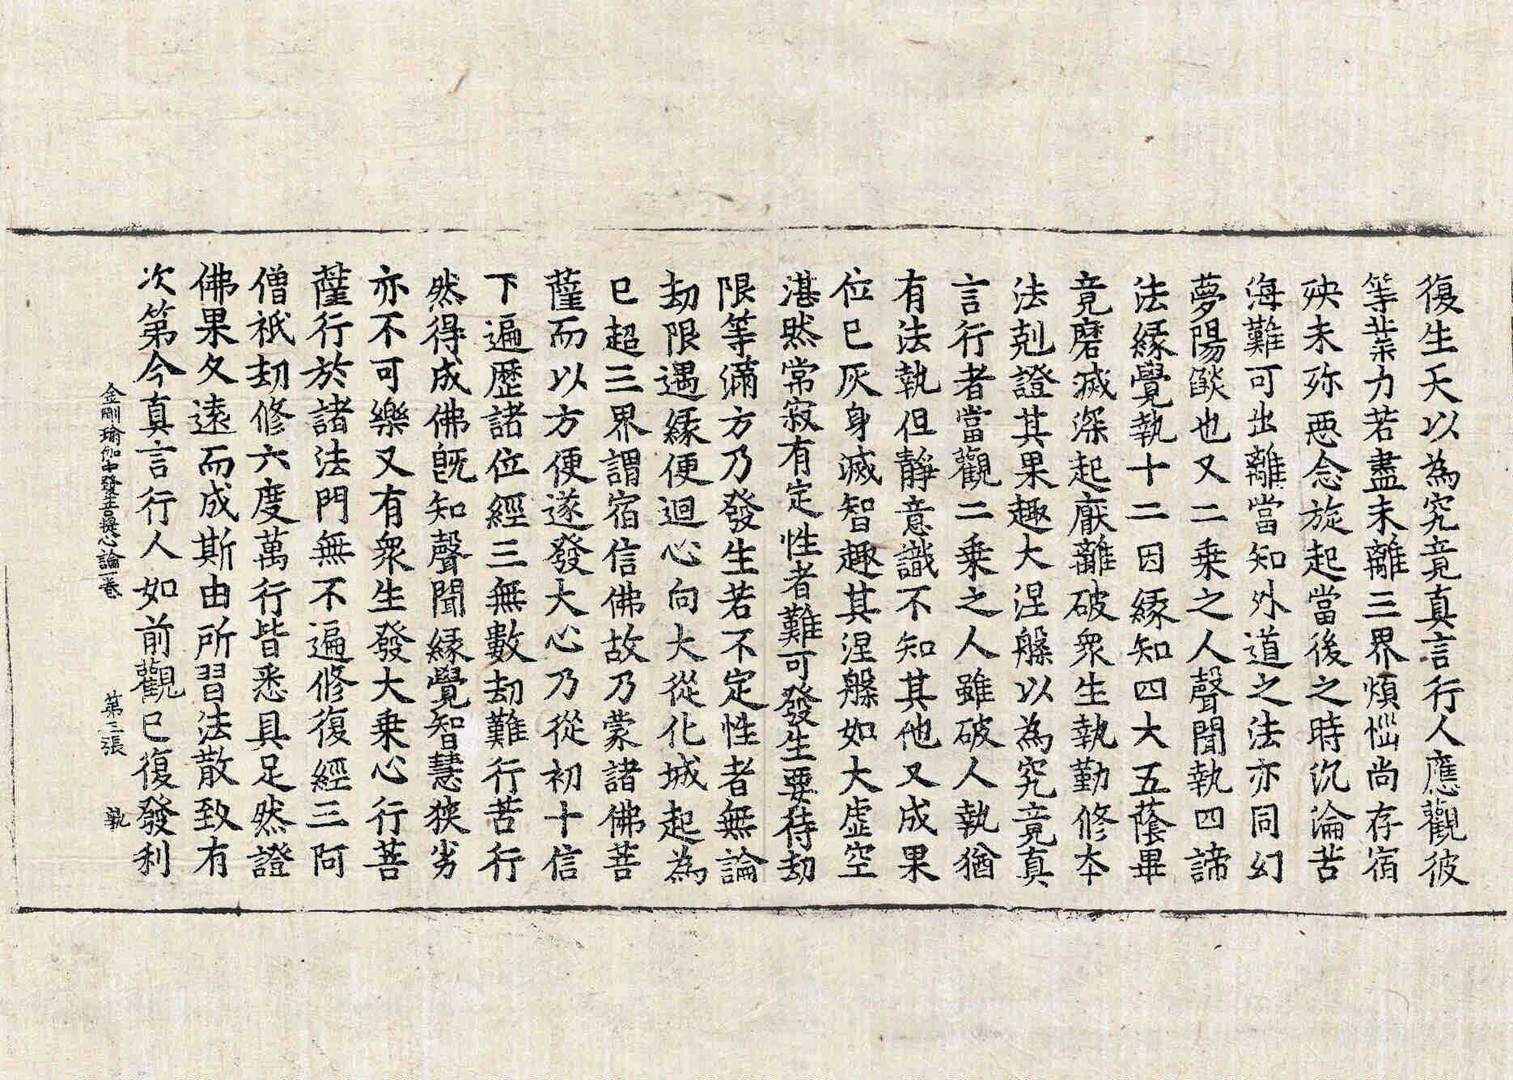 復生天以為究竟真言行人應觀彼
等業力若盡未離三界煩惱尚存宿
殃未殄惡念旋起當後之時沉淪苦
海難可出離當知外道之法亦同幻
夢陽燄也又二乗之人聲聞執四諦
法緣覺執十二因緣知四大五蔭畢
竟磨滅深起厭離破衆生執勤修本
法剋證其果趣大涅槃以為究竟真
言行者當觀二乗之人雖破人執猶
有法執但靜意識不知其他又成果
位已灰身滅智趣其涅槃如大虛空
湛然常寂有定性者難可發生要待劫
限等滿方乃發生若不定性者無論
劫限遇緣便迴心向大從化城起為
已超三界謂宿信佛故乃蒙諸佛菩
薩而以方便遂發大心乃從初十信
下遍歷諸位經三無數劫難行苦行
然得成佛旣知聲聞緣覺智慧狹劣
亦不可樂又有衆生發大乗心行菩
薩行於諸法門無不遍修復經三阿
僧祇劫修六度萬行皆悉具足然證
佛果久遠而成斯由所習法散致有
次第今真言行人如前觀已復發利
金剛瑜伽中發菩提心論一卷 第三張 執